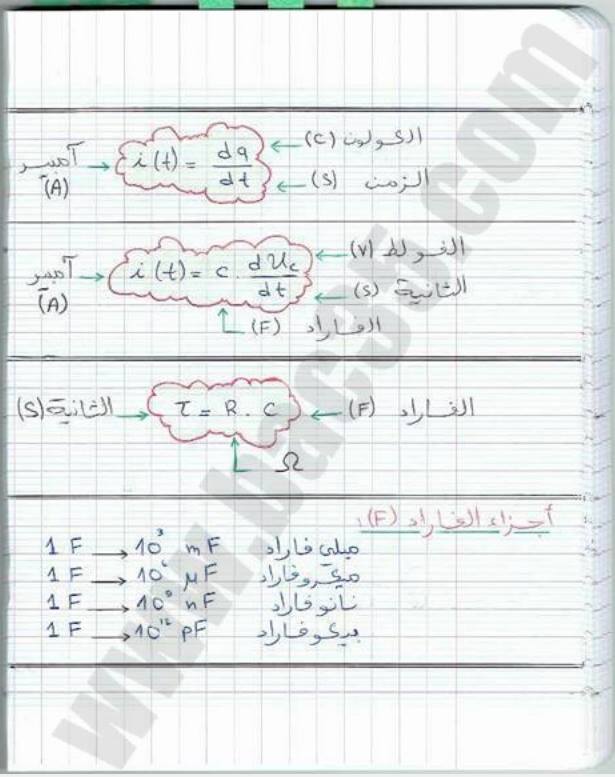 i(t) = dq/dt
الكولون (C)
الزمن (S)
آمبير
(A)
i(t) = c . dUc/dt
الفولط (V)
الثانية (S)
الفاراد (F)
آمبير
(A)
τ = R . C
الفاراد (F)
الثانية (S)
Ω
أجزاء الفاراد (F):
1 F → 10³ mF ميلي فاراد
1 F → 10⁶ µF ميكروفاراد
1 F → 10⁹ nF نانوفاراد
1 F → 10¹² pF بيكوفاراد
www.bac35.com